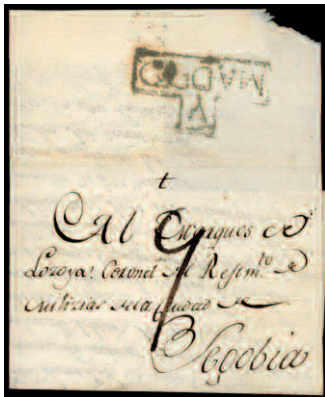 Al Marques de
Lozoya, Coronel del Regim.to de
Milicias de la Ciudad de
Segobia